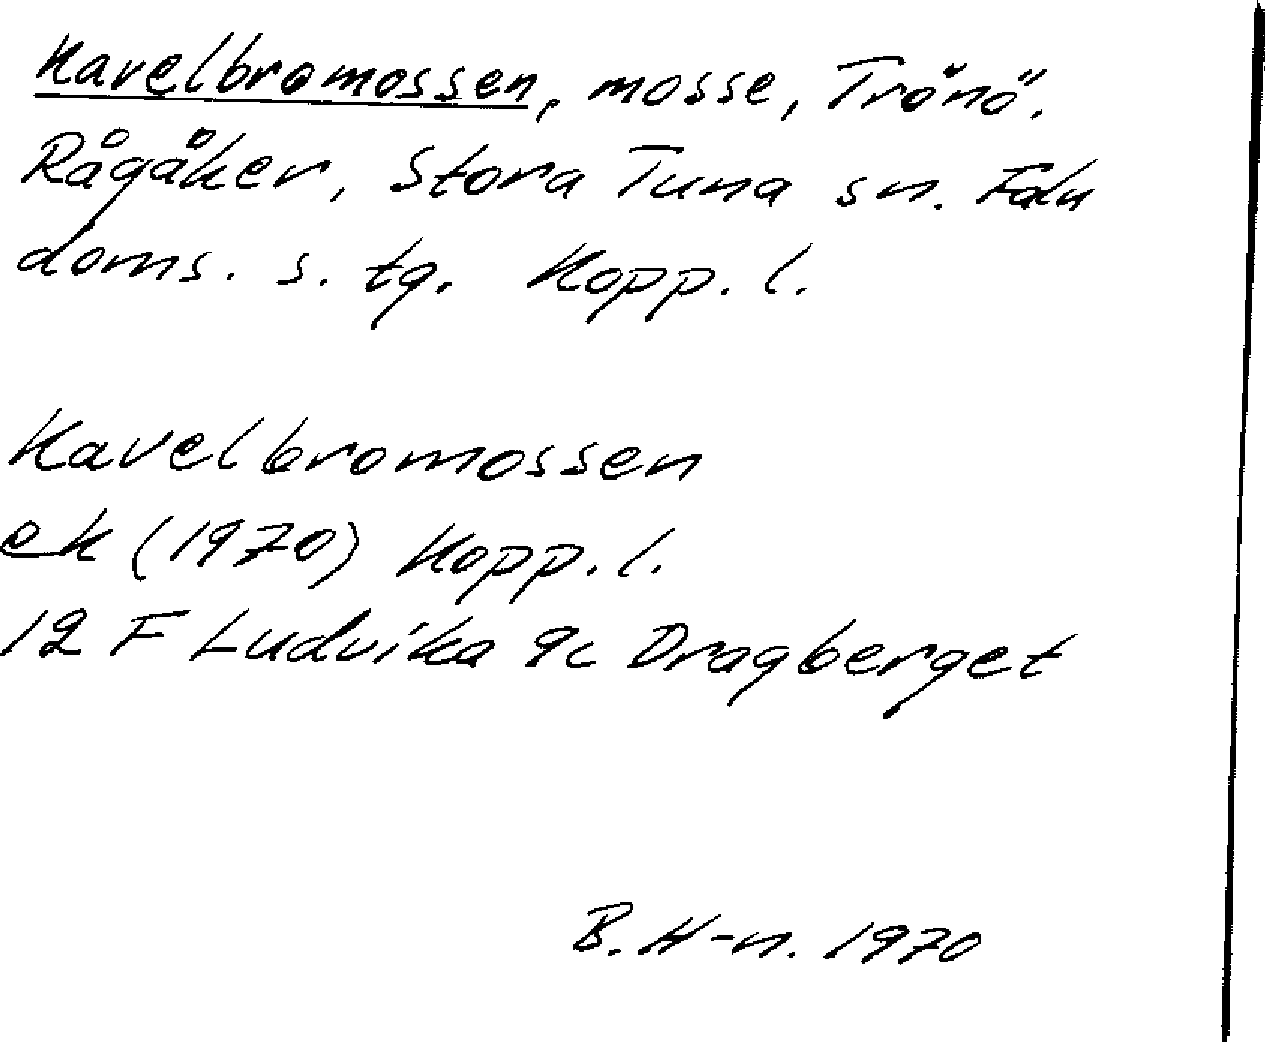 Kavelbromossen, mosse, Trönö.
Rågåker, Stora Tuna sn. Falu
doms. s. tg. Kopp. l.
Kavelbromossen
ek (1970) Kopp. l.
12 F Ludvika 9c Dragberget
B. H-n. 1970